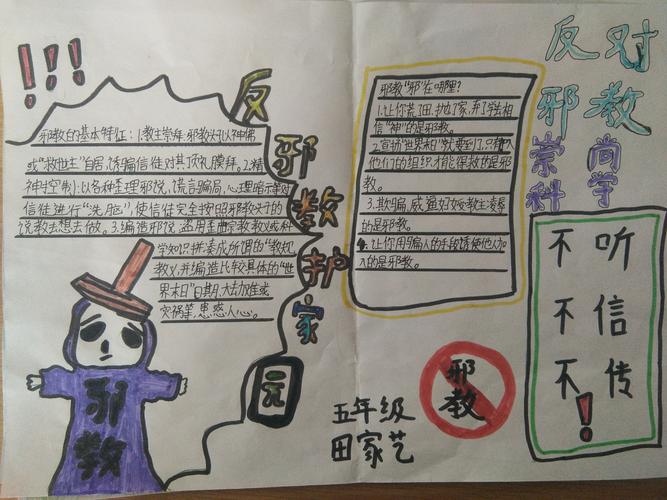 !!!
邪教的基本特征：1.教主崇拜.邪教大以神佛
或"救世主"自居，诱骗信徒对其顶礼膜拜。2.精
神控制：以各种歪理邪说、谎言骗局、心理暗示等对
信徒进行"洗脑"，使信徒完全按照邪教头子的
说教去想去做。3.编造邪说.盗用歪曲宗教教义或科
学知识拼凑成所谓的"教规
教义，并编造比较具体的"世
界末日"日期.大去加难或
灾祸等，患惑人心。
反邪教护家园
邪教"邪"在哪里？
1.让你荒了田，护了家，弃了学去相
信"神"的是邪教。
2.宣扬"世界末日"就要到了，只
他们的组织才能得救的是邪
教。
3.欺骗、威逼妇女
的是邪教。
4.让你用骗人的手段诱使他人加
入的是邪教。
反对
邪教
崇尚
科学
不听
不信
不传
!
邪教
邪教
五年级
田家艺